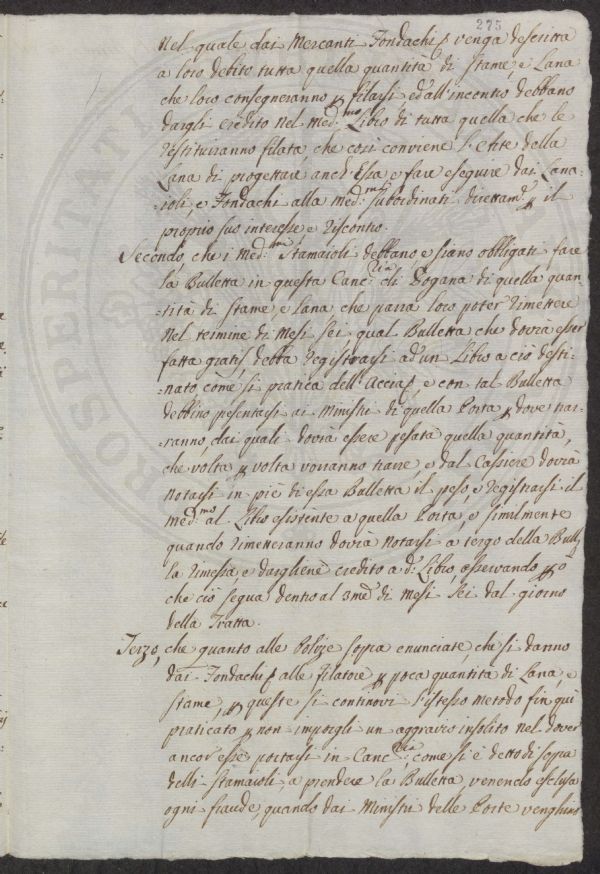 275
nel quale dai Mercanti Fondachj venga descritta
a loro debito tutta quella quantità di stame, e Lana
che loro consegneranno p filarsi ed all'incontro debbano
dargli credito nel Med.mo Libro di tutta quella che le
restituiranno filata, che così conviene l'Arte della
Lana di progettare anch'Essa e fare eseguire dai Lana-
-ioli, e Fondachi alla Med.ma subordinati direttam.e p il
proprio suo interesse e riscontro.
Secondo, che i Med.mi Stamaioli debbano e siano obbligati fare
la Bulletta in questa Canc.ria di Dogana di quella quan-
-tità di stame, e lana che parrà loro poter rimettere
nel termine di Mesi sei, qual Bulletta che dovrà esser
fatta gratis debba registrarsi ad'un Libro a ciò desti-
nato come si pratica dell'Accia, e con tal Bulletta
debbino presentarsi ai Ministri di quella Porta p dove trar-
ranno, dai quali dovrà essere pesata quella quantità,
che volta p volta vorranno trarre, e dal Cassiere dovrà
notarsi in piè di essa Bulletta il peso, e registrarsi il
med.mo al Libro esistente a quella Porta, e similmente
quando rimetteranno dovrà notarsi a tergo della Bull.
la rimessa, e dargliene credito a d.o Libro, osservando p o
che ciò segua dentro al 3mè di Mesi sei dal giorno
della Tratta.
Terzo, che quanto alle Polize sopra enunciate, che si danno
dai Fondachj alle filatore p poca quantità di Lana, e
stame, p queste si continovi l'istesso metodo fin qui
praticato p non imporgli un aggravio insolito nel dover
ancor esse portarsi in Canc.ria come si è detto di sopra
delli stamaioli a prendere la Bulletta, venendo esclusa
ogni fraude, quando dai Ministri delle Porte venghino